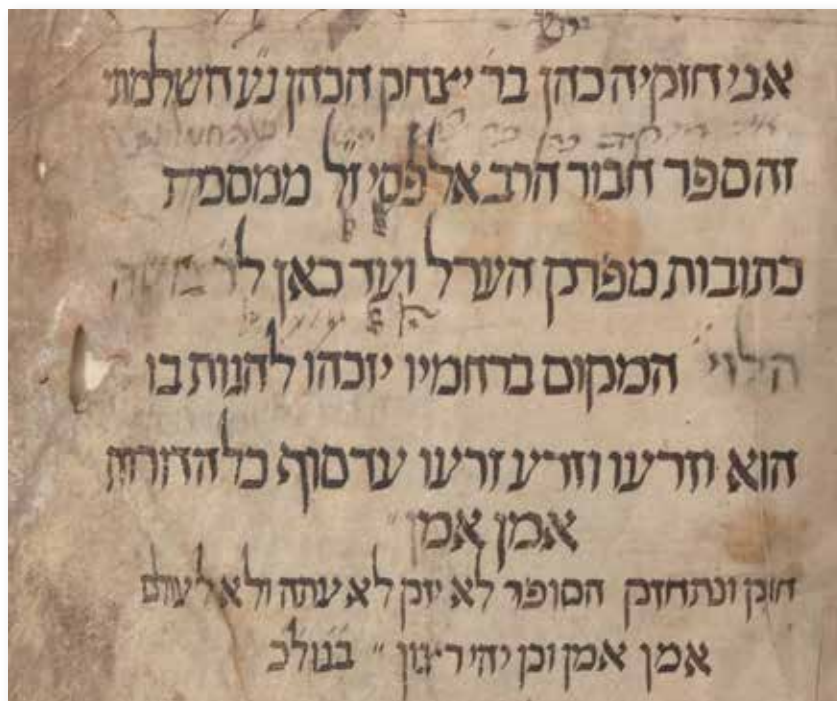 אני חזקיה כהן בר׳ יצחק הכהן נ״ע השלמתי
זה ספר חבור הרב אלפסי ז״ל ממסכת
כתובות מפרק הערל ועד כאן לר׳ משה
הלוי המקום ברחמיו יזכהו להגות בו
הוא וזרעו וזרע זרעו עד סוף כל הדורות
אמן אמן
חזק ונתחזק הסופר לא יזק לא עתה ולא לעולם
אמן אמן וכן יהי רצון